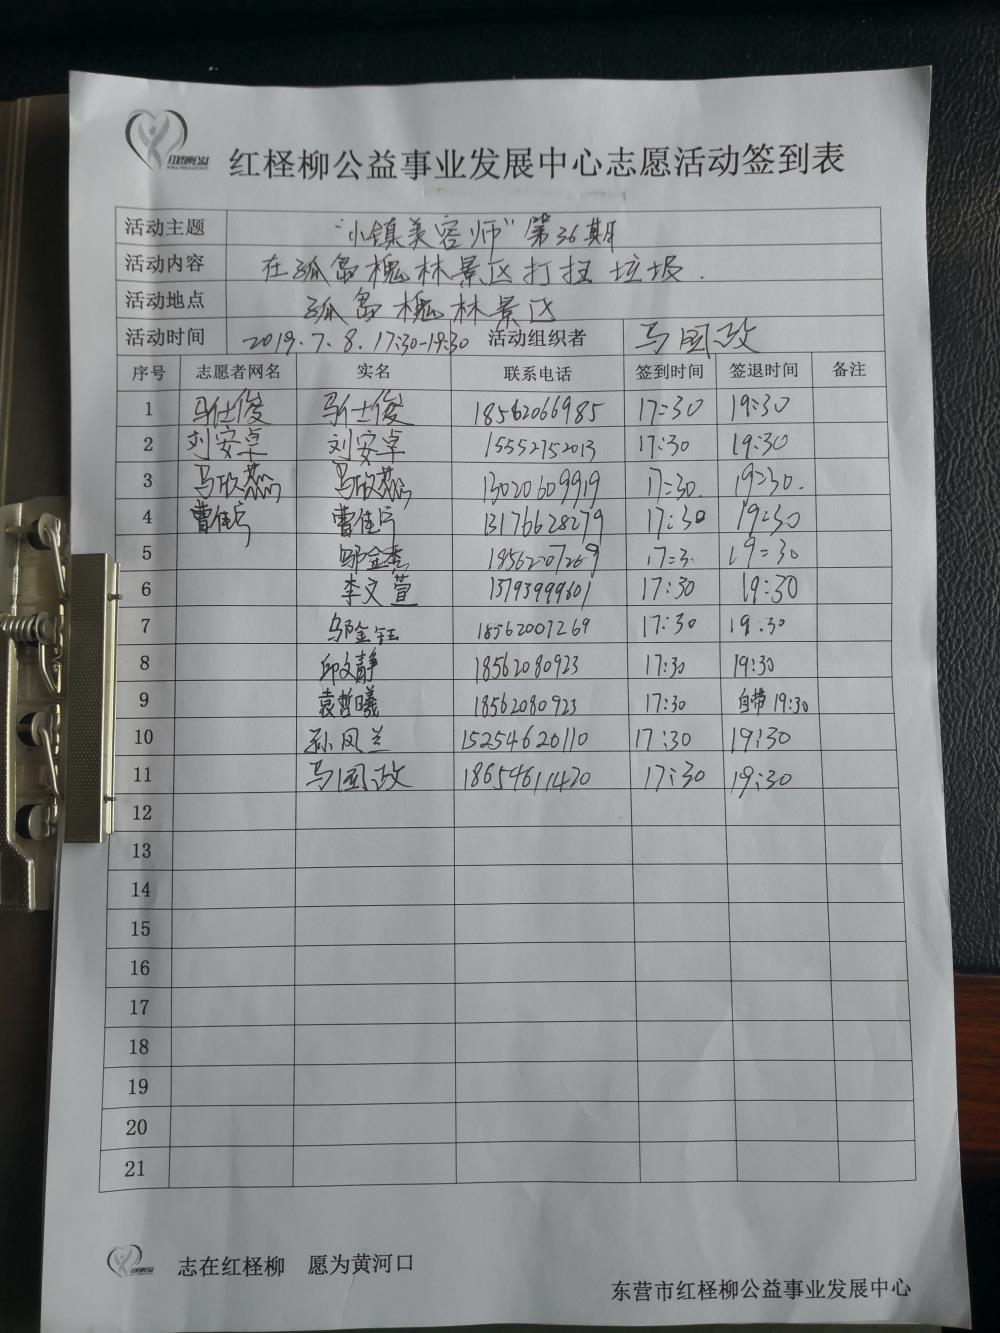 红柽柳公益事业发展中心志愿活动签到表
活动主题 "小镇美容师"第36期
活动内容 在孤岛槐林景区打扫垃圾.
活动地点 孤岛槐林景区
活动时间 2019.7.8.17:30-19:30 活动组织者 马国政
序号 志愿者网名 实名 联系电话 签到时间 签退时间 备注
1 马仕俊 马仕俊 18562066985 17:30 19:30
2 刘安卓 刘安卓 15552752013 17:30 19:30
3 马欣燕 马欣燕 13020609919 17:30. 19:30.
4 曹佳宁 曹佳宁 13176628279 17:30 19:30
5 邬金秀 18562007269 17:3. 19:30
6 李文萱 13793999601 17:30 19:30
7 邬金钰 18562007269 17:30 19:30
8 邱文静 18562080923 17:30 19:30
9 袁哲曦 18562080923 17:30 19:30
10 孙凤兰 15254620110 17:30 19:30
11 马国政 18654611420 17:30 19:30
12
13
14
15
16
17
18
19
20
21
志在红柽柳 愿为黄河口
东营市红柽柳公益事业发展中心